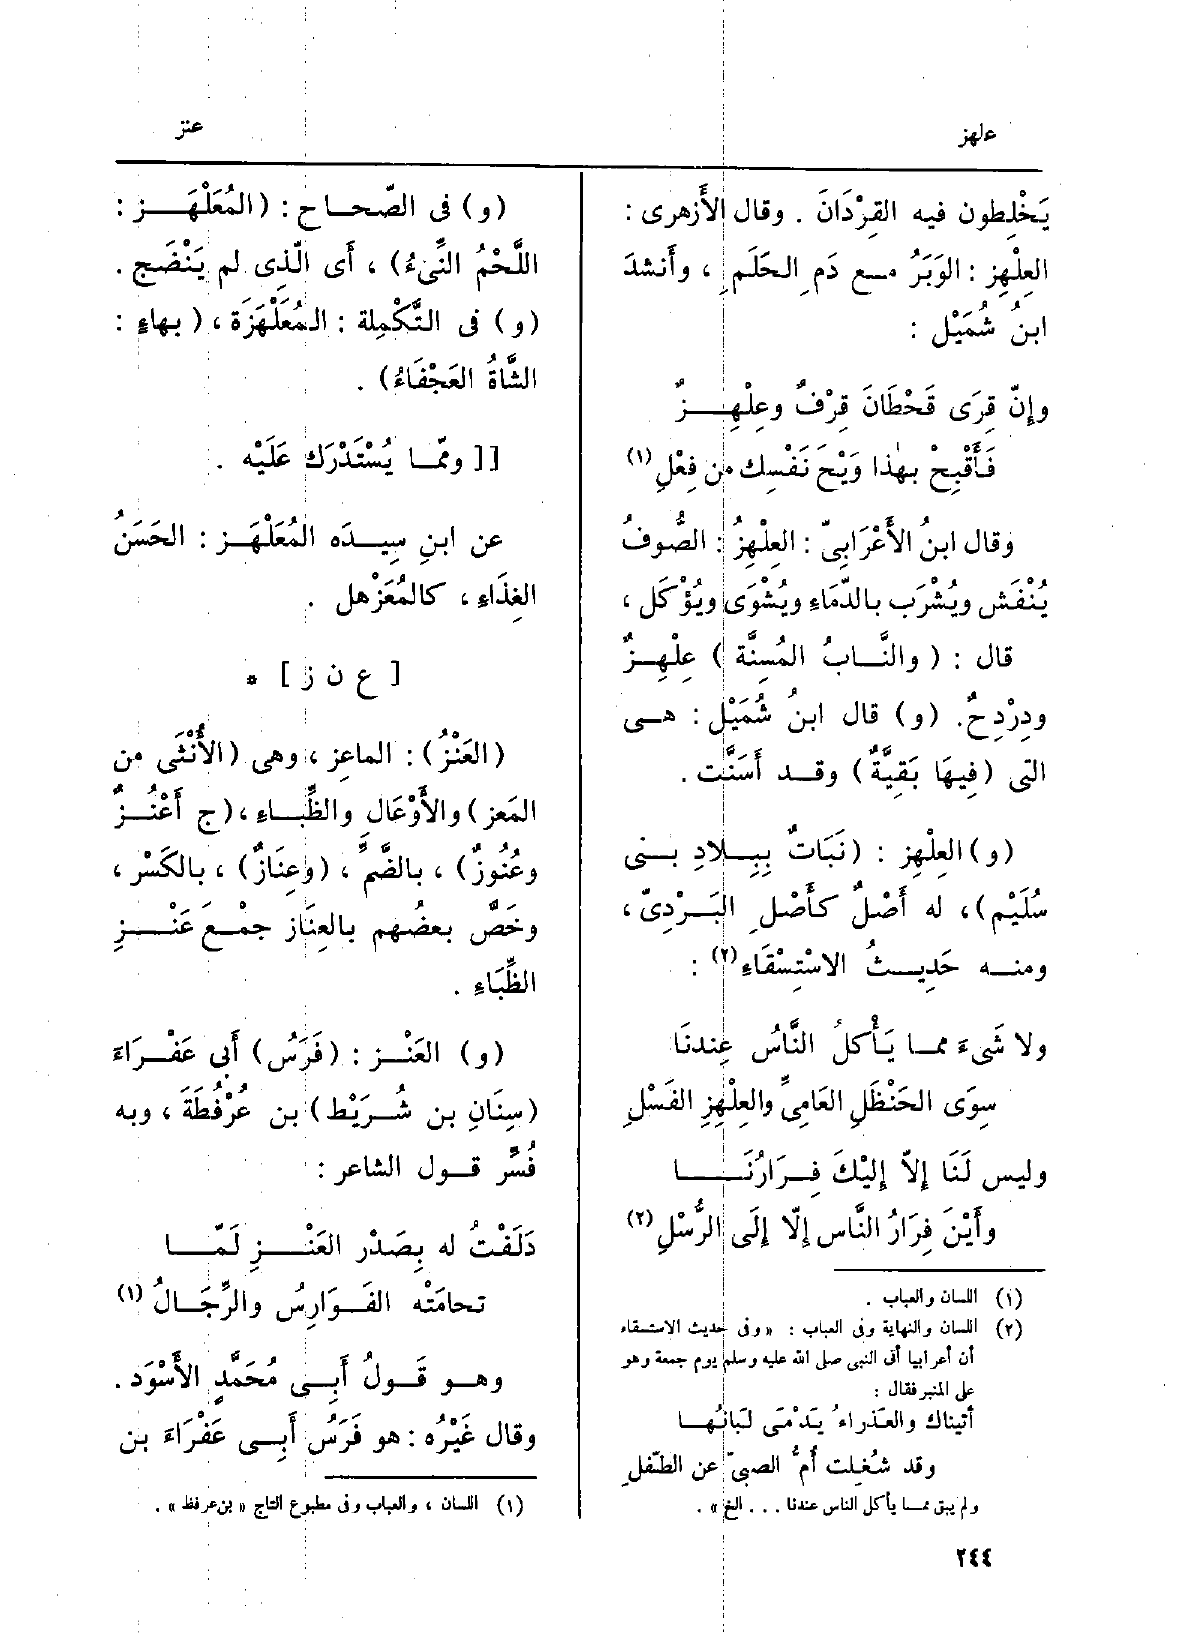 علهز
عنز
يَخْلِطون فيه القِرْدَانَ . وقال الأَزهرى :
العِلْهِز : الوَبَرُ مع دَمِ الحَلَمِ ، وأَنشدَ
ابنُ شُمَيْل :
وإِنّ قِرَى قَحْطَانَ قِرْفٌ وعِلْهِزٌ
فَأَقْبِحْ بهٰذا وَيْحَ نَفْسِك من فِعْلِ (١)
وقال ابنُ الأَعْرَابِىّ : العِلْهِزُ : الصُّوفُ
يُنْفَش ويُشْرَب بالدِّمَاءِ ويُشْوَى ويُؤْكَل ،
قال : ( والنَّابُ المُسِنَّة ) عِلْهِزٌ
ودِرْدِحٌ. (و) قال ابنُ شُمَيْل : هى
التى (فِيهَا بَقِيَّةٌ) وقد أَسَنَّت .
(و) العِلْهِز : (نَبَاتٌ بِبِلادِ بنى
سُلَيْم)، له أَصْلٌ كأَصْلِ البَرْدِىّ ،
ومنه حَدِيثُ الاسْتِسْقَاءِ (٢) :
ولا شَىءَ مما يَأْكلُ النَّاسُ عِندنَا
سِوَى الحَنْظَلِ العَامِىِّ والعِلْهِزِ الفَسْلِ
وليس لَنَا إِلاّ إِلَيْكَ فِرَارُنَا
وأَيْنَ فِرَارُ النَّاس إِلّا إِلَى الرُّسْلِ (٢)
(١) اللسان والعباب .
(٢) اللسان والنهاية وفى العباب : « وفى حديث الاستسقاء
أن أعرابيا أتى النبى صلى الله عليه وسلم يوم جمعة وهو
على المنبر فقال :
أتيناك والعذراءُ يَدْمَى لَبَانُها
وقد شُغِلت أمُّ الصبىّ عن الطّفلِ
ولم يبق مما يأكل الناس عندنا . . . الخ » .
(و) فى الصّحاح : (المُعَلْهَز :
اللَّحْمُ النِّىءُ) ، أَى الَّذِى لم يَنْضَج .
(و) فى التَّكْمِلة : المُعَلْهَزَة ، ( بهاءٍ :
الشَّاةُ العَجْفَاءُ) .
[] وممّا يُسْتَدْرَك عَلَيْه .
عن ابنِ سِيدَه المُعَلْهَز : الحَسَنُ
الغِذَاءِ ، كالمُعَزْهل .
[ ع ن ز ] *
(العَنْزُ) : الماعِز ، وهى (الأُنْثَى من
المَعز) والأَوْعَالِ والظِّبَاءِ ، (ج أَعْنُزٌ
وعُنُوزٌ) ، بالضَّمِّ ، (وعِنَازٌ) ، بالكَسْر ،
وخَصَّ بعضُهم بالعِنَازِ جمْعَ عَنْزِ
الظِّبَاءِ .
(و) العَنْز : (فَرَسُ) أَبى عَفْرَاءَ
(سِنَانِ بن شُرَيْط) بن عُرْفُطَةَ ، وبه
فُسِّر قول الشاعر :
دَلَفْتُ له بِصَدْر العَنْزِ لَمَّا
تحامَتْه الفَوَارِسُ والرِّجَالُ (١)
وهو قَولُ أَبِى مُحَمَّدٍ الأَسْوَد .
وقال غَيْرُه : هو فَرَسُ أَبِى عَفْرَاءَ بن
(١) اللسان ، والعباب وفى مطبوع التاج « بن عرفظ » .
٢٤٤